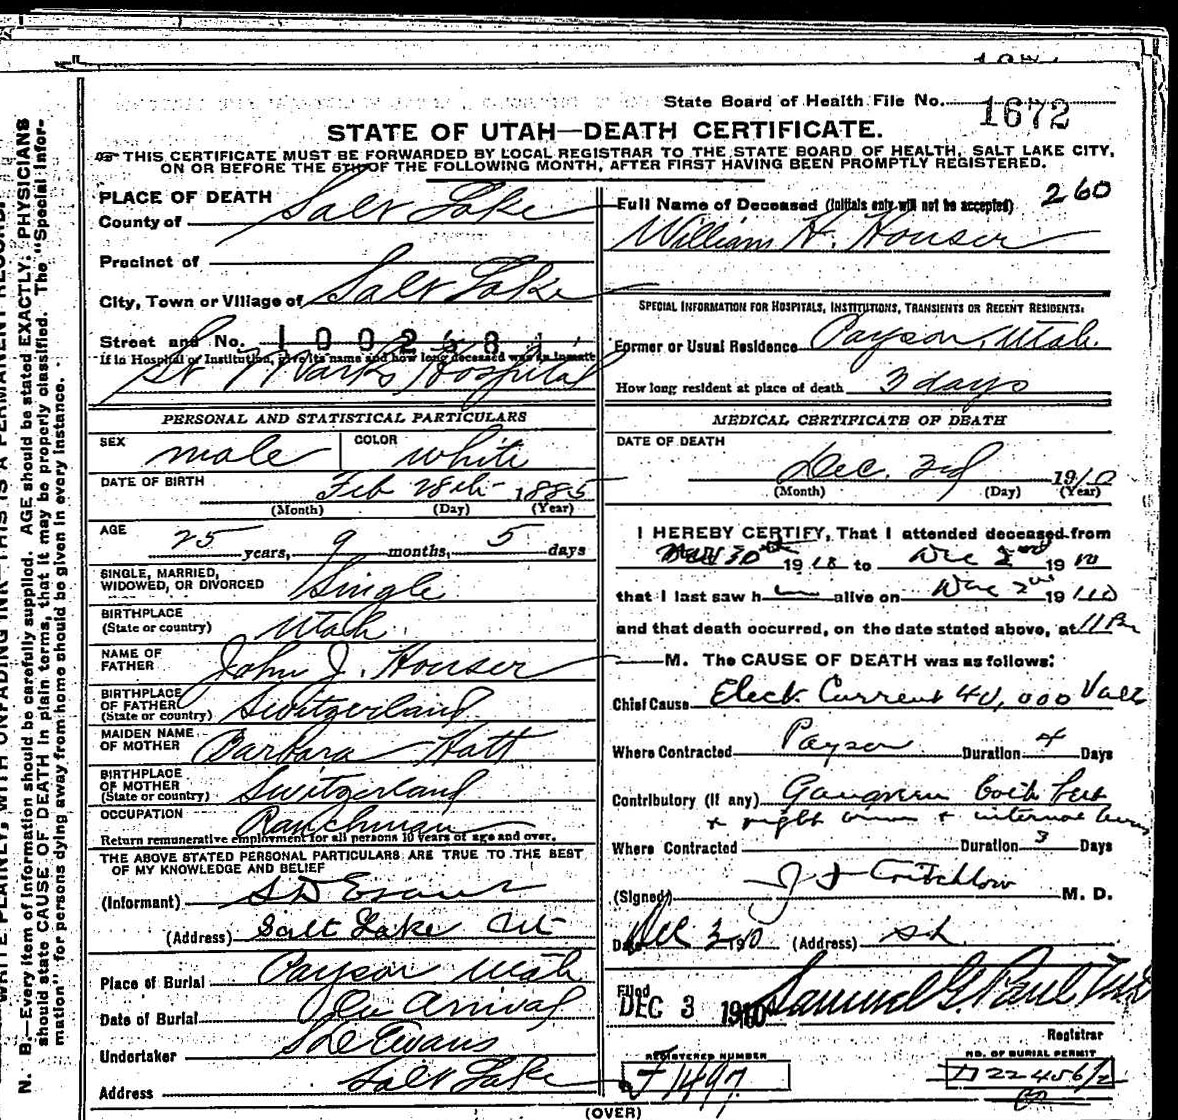 State Board of Health File No. 1672
STATE OF UTAH—DEATH CERTIFICATE.
THIS CERTIFICATE MUST BE FORWARDED BY LOCAL REGISTRAR TO THE STATE BOARD OF HEALTH, SALT LAKE CITY,
ON OR BEFORE THE 5TH OF THE FOLLOWING MONTH, AFTER FIRST HAVING BEEN PROMPTLY REGISTERED.
PLACE OF DEATH
County of Salt Lake
Precinct of
City, Town or Village of Salt Lake
Street and No. 1002681
If in Hospital or Institution, give its name and how long deceased was an inmate
St Marks Hospital
PERSONAL AND STATISTICAL PARTICULARS
SEX male COLOR white
DATE OF BIRTH Feb 28th 1885
(Month) (Day) (Year)
AGE 25 years, 9 months, 5 days
SINGLE, MARRIED,
WIDOWED, OR DIVORCED Single
BIRTHPLACE
(State or country) Utah
NAME OF
FATHER John J. Houser
BIRTHPLACE
OF FATHER
(State or country) Switzerland
MAIDEN NAME
OF MOTHER Barbara Hatt
BIRTHPLACE
OF MOTHER
(State or country) Switzerland
OCCUPATION Ranchman
Return remunerative employment for all persons 10 years of age and over.
THE ABOVE STATED PERSONAL PARTICULARS ARE TRUE TO THE BEST
OF MY KNOWLEDGE AND BELIEF
(Informant) S D Evans
(Address) Salt Lake Cit
Place of Burial Payson Utah
Date of Burial On Arrival
Undertaker S D Evans
Address Salt Lake
260
Full Name of Deceased (Initials only will not be accepted)
William H. Houser
SPECIAL INFORMATION FOR HOSPITALS, INSTITUTIONS, TRANSIENTS OR RECENT RESIDENTS:
Former or Usual Residence Payson, Utah.
How long resident at place of death 3 days
MEDICAL CERTIFICATE OF DEATH
DATE OF DEATH
Dec. 3rd 1910
(Month) (Day) (Year)
I HEREBY CERTIFY, That I attended deceased from
Nov 30th 1910 to Dec 2nd 1910
that I last saw h alive on Dec 2nd 1910
and that death occurred, on the date stated above, at 11 P
M. The CAUSE OF DEATH was as follows:
Chief Cause Eleck Current 40,000 Volts
Where Contracted Payson Duration 4 Days
Contributory (if any) Gangrene both feet
+ right arm + internal burns
Where Contracted Duration 3 Days
(Signed) J F Critchlow M. D.
Date Dec 3 1910 (Address) S L
Filed
DEC 3 1910 Samuel G. Paul M D
Registrar
REGISTERED NUMBER
F 1497
NO. OF BURIAL PERMIT
D 22456/2
(OVER)
N. B.—Every item of information should be carefully supplied. AGE should be stated EXACTLY. PHYSICIANS
should state CAUSE OF DEATH in plain terms, that it may be properly classified. The "Special Infor-
mation" for persons dying away from home should be given in every instance.